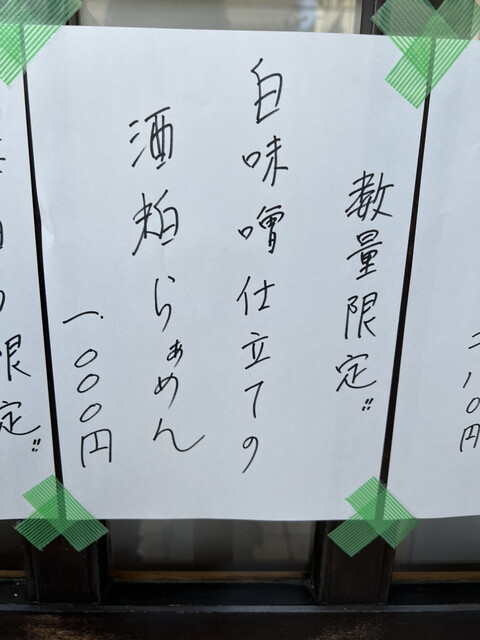 数量限定!!
白味噌仕立ての
酒粕らぁめん
一.〇〇〇円
限定!!